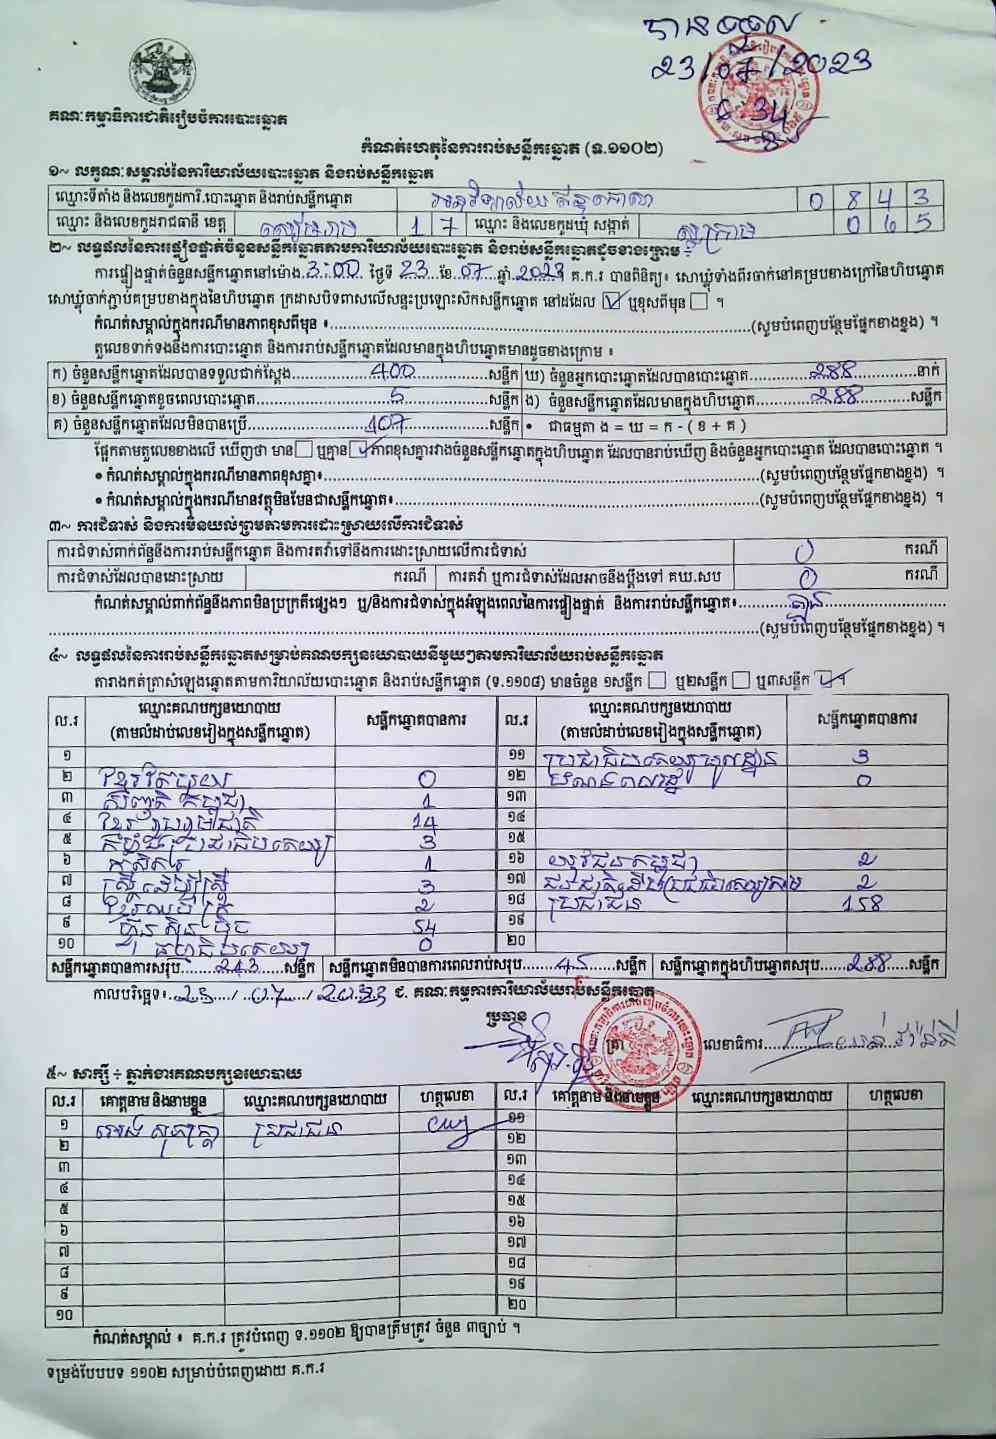 បានទទួល
23/07/2023
គណៈកម្មាធិការជាតិរៀបចំការបោះឆ្នោត
កំណត់ហេតុនៃការរាប់សន្លឹកឆ្នោត (ទ.១១០២)
១~ លក្ខណៈសម្គាល់នៃការិយាល័យបោះឆ្នោត និងរាប់សន្លឹកឆ្នោត
ឈ្មោះទីតាំង និងលេខកូដការិ.បោះឆ្នោត និងរាប់សន្លឹកឆ្នោត 0 8 4 3
ឈ្មោះ និងលេខកូដរាជធានី ខេត្ត សៀមរាប 1 7 ឈ្មោះ និងលេខកូដឃុំ សង្កាត់ ស្លក្រាម 0 6 5
២~ លទ្ធផលនៃការផ្ទៀងផ្ទាត់ចំនួនសន្លឹកឆ្នោតតាមការិយាល័យបោះឆ្នោត និងរាប់សន្លឹកឆ្នោតដូចខាងក្រោម ÷
ការផ្ទៀងផ្ទាត់ចំនួនសន្លឹកឆ្នោតនៅម៉ោង 3:00 ថ្ងៃទី 23 ខែ 07 ឆ្នាំ 2023 គ.ក.រ បានពិនិត្យ៖ សោឃ្លុំទាំងពីរចាក់នៅគម្របខាងក្រៅនៃហិបឆ្នោត
សោឃ្លុំចាក់ភ្ជាប់គម្របខាងក្នុងនៃហិបឆ្នោត ក្រដាសបិទពាសលើសន្ទះប្រឡោះស៊កសន្លឹកឆ្នោត នៅដដែល ☑ ឬខុសពីមុន ☐ ។
កំណត់សម្គាល់ក្នុងករណីមានភាពខុសពីមុន ៖ (សូមបំពេញបន្ថែមផ្នែកខាងខ្នង) ។
តួលេខទាក់ទងនឹងការបោះឆ្នោត និងការរាប់សន្លឹកឆ្នោតដែលមានក្នុងហិបឆ្នោតមានដូចខាងក្រោម ៖
ក) ចំនួនសន្លឹកឆ្នោតដែលបានទទួលជាក់ស្តែង 400 សន្លឹក ឃ) ចំនួនអ្នកបោះឆ្នោតដែលបានបោះឆ្នោត 288 នាក់
ខ) ចំនួនសន្លឹកឆ្នោតខូចពេលបោះឆ្នោត 5 សន្លឹក ង) ចំនួនសន្លឹកឆ្នោតដែលមានក្នុងហិបឆ្នោត 288 សន្លឹក
គ) ចំនួនសន្លឹកឆ្នោតដែលមិនបានប្រើ 107 សន្លឹក • ជាធម្មតា ង = ឃ = ក - ( ខ + គ )
ផ្អែកតាមតួលេខខាងលើ ឃើញថា មាន ☐ ឬគ្មាន ☑ ភាពខុសគ្នារវាងចំនួនសន្លឹកឆ្នោតក្នុងហិបឆ្នោត ដែលបានរាប់ឃើញ និងចំនួនអ្នកបោះឆ្នោត ដែលបានបោះឆ្នោត ។
• កំណត់សម្គាល់ក្នុងករណីមានភាពខុសគ្នា៖ (សូមបំពេញបន្ថែមផ្នែកខាងខ្នង) ។
• កំណត់សម្គាល់ក្នុងករណីមានវត្ថុមិនមែនជាសន្លឹកឆ្នោត៖ (សូមបំពេញបន្ថែមផ្នែកខាងខ្នង) ។
៣~ ការជំទាស់ និងការមិនយល់ព្រមតាមការដោះស្រាយលើការជំទាស់
ការជំទាស់ពាក់ព័ន្ធនឹងការរាប់សន្លឹកឆ្នោត និងការតវ៉ាទៅនឹងការដោះស្រាយលើការជំទាស់ 0 ករណី
ការជំទាស់ដែលបានដោះស្រាយ ករណី ការតវ៉ា ឬការជំទាស់ដែលអាចនឹងប្តឹងទៅ គឃ.សប 0 ករណី
កំណត់សម្គាល់ពាក់ព័ន្ធនឹងភាពមិនប្រក្រតីផ្សេងៗ ឬ/និងការជំទាស់ក្នុងអំឡុងពេលនៃការផ្ទៀងផ្ទាត់ និងការរាប់សន្លឹកឆ្នោត៖ គ្មាន
(សូមបំពេញបន្ថែមផ្នែកខាងខ្នង) ។
៤~ លទ្ធផលនៃការរាប់សន្លឹកឆ្នោតសម្រាប់គណបក្សនយោបាយនីមួយៗតាមការិយាល័យរាប់សន្លឹកឆ្នោត
តារាងកត់ត្រាសំឡេងឆ្នោតតាមការិយាល័យបោះឆ្នោត និងរាប់សន្លឹកឆ្នោត (ទ.១១០៨) មានចំនួន ១សន្លឹក ☐ ឬ២សន្លឹក ☐ ឬ៣សន្លឹក ☑ ។
ល.រ ឈ្មោះគណបក្សនយោបាយ (តាមលំដាប់លេខរៀងក្នុងសន្លឹកឆ្នោត) សន្លឹកឆ្នោតបានការ ល.រ ឈ្មោះគណបក្សនយោបាយ (តាមលំដាប់លេខរៀងក្នុងសន្លឹកឆ្នោត) សន្លឹកឆ្នោតបានការ
១ ១១ ប្រជាធិបតេយ្យមូលដ្ឋាន 3
២ ខ្មែរវិនរបុរស 0 ១២ បំណងពលរដ្ឋ 0
៣ សញ្ជាតិកម្ពុជា 1 ១៣
៤ ខ្មែររួបរួមជាតិ 14 ១៤
៥ សំបុកឃ្មុំប្រជាធិបតេយ្យ 3 ១៥
៦ កសិករ 1 ១៦ យុវជនកម្ពុជា 2
៧ ស្ត្រីដើម្បីស្ត្រី 3 ១៧ 2
៨ ខ្មែរឈប់ក្រ 2 ១៨ ប្រជាជន 158
៩ ហ៊្វុនស៊ិនប៉ិច 54 ១៩
១០ ធម្មាធិបតេយ្យ 0 ២០
សន្លឹកឆ្នោតបានការសរុប 243 សន្លឹក សន្លឹកឆ្នោតមិនបានការពេលរាប់សរុប 45 សន្លឹក សន្លឹកឆ្នោតក្នុងហិបឆ្នោតសរុប 288 សន្លឹក
កាលបរិច្ឆេទ៖ 23 / 07 / 2023 ជ. គណៈកម្មការការិយាល័យរាប់សន្លឹកឆ្នោត
ប្រធាន
ត្រា លេខាធិការ
៥~ សាក្សី ÷ ភ្នាក់ងារគណបក្សនយោបាយ
ល.រ គោត្តនាម និងនាមខ្លួន ឈ្មោះគណបក្សនយោបាយ ហត្ថលេខា ល.រ គោត្តនាម និងនាមខ្លួន ឈ្មោះគណបក្សនយោបាយ ហត្ថលេខា
១ ប្រជាជន ១១
២ ១២
៣ ១៣
៤ ១៤
៥ ១៥
៦ ១៦
៧ ១៧
៨ ១៨
៩ ១៩
១០ ២០
កំណត់សម្គាល់ ៖ គ.ក.រ ត្រូវបំពេញ ទ.១១០២ ឱ្យបានត្រឹមត្រូវ ចំនួន ៣ច្បាប់ ។
ទម្រង់បែបបទ ១១០២ សម្រាប់បំពេញដោយ គ.ក.រ